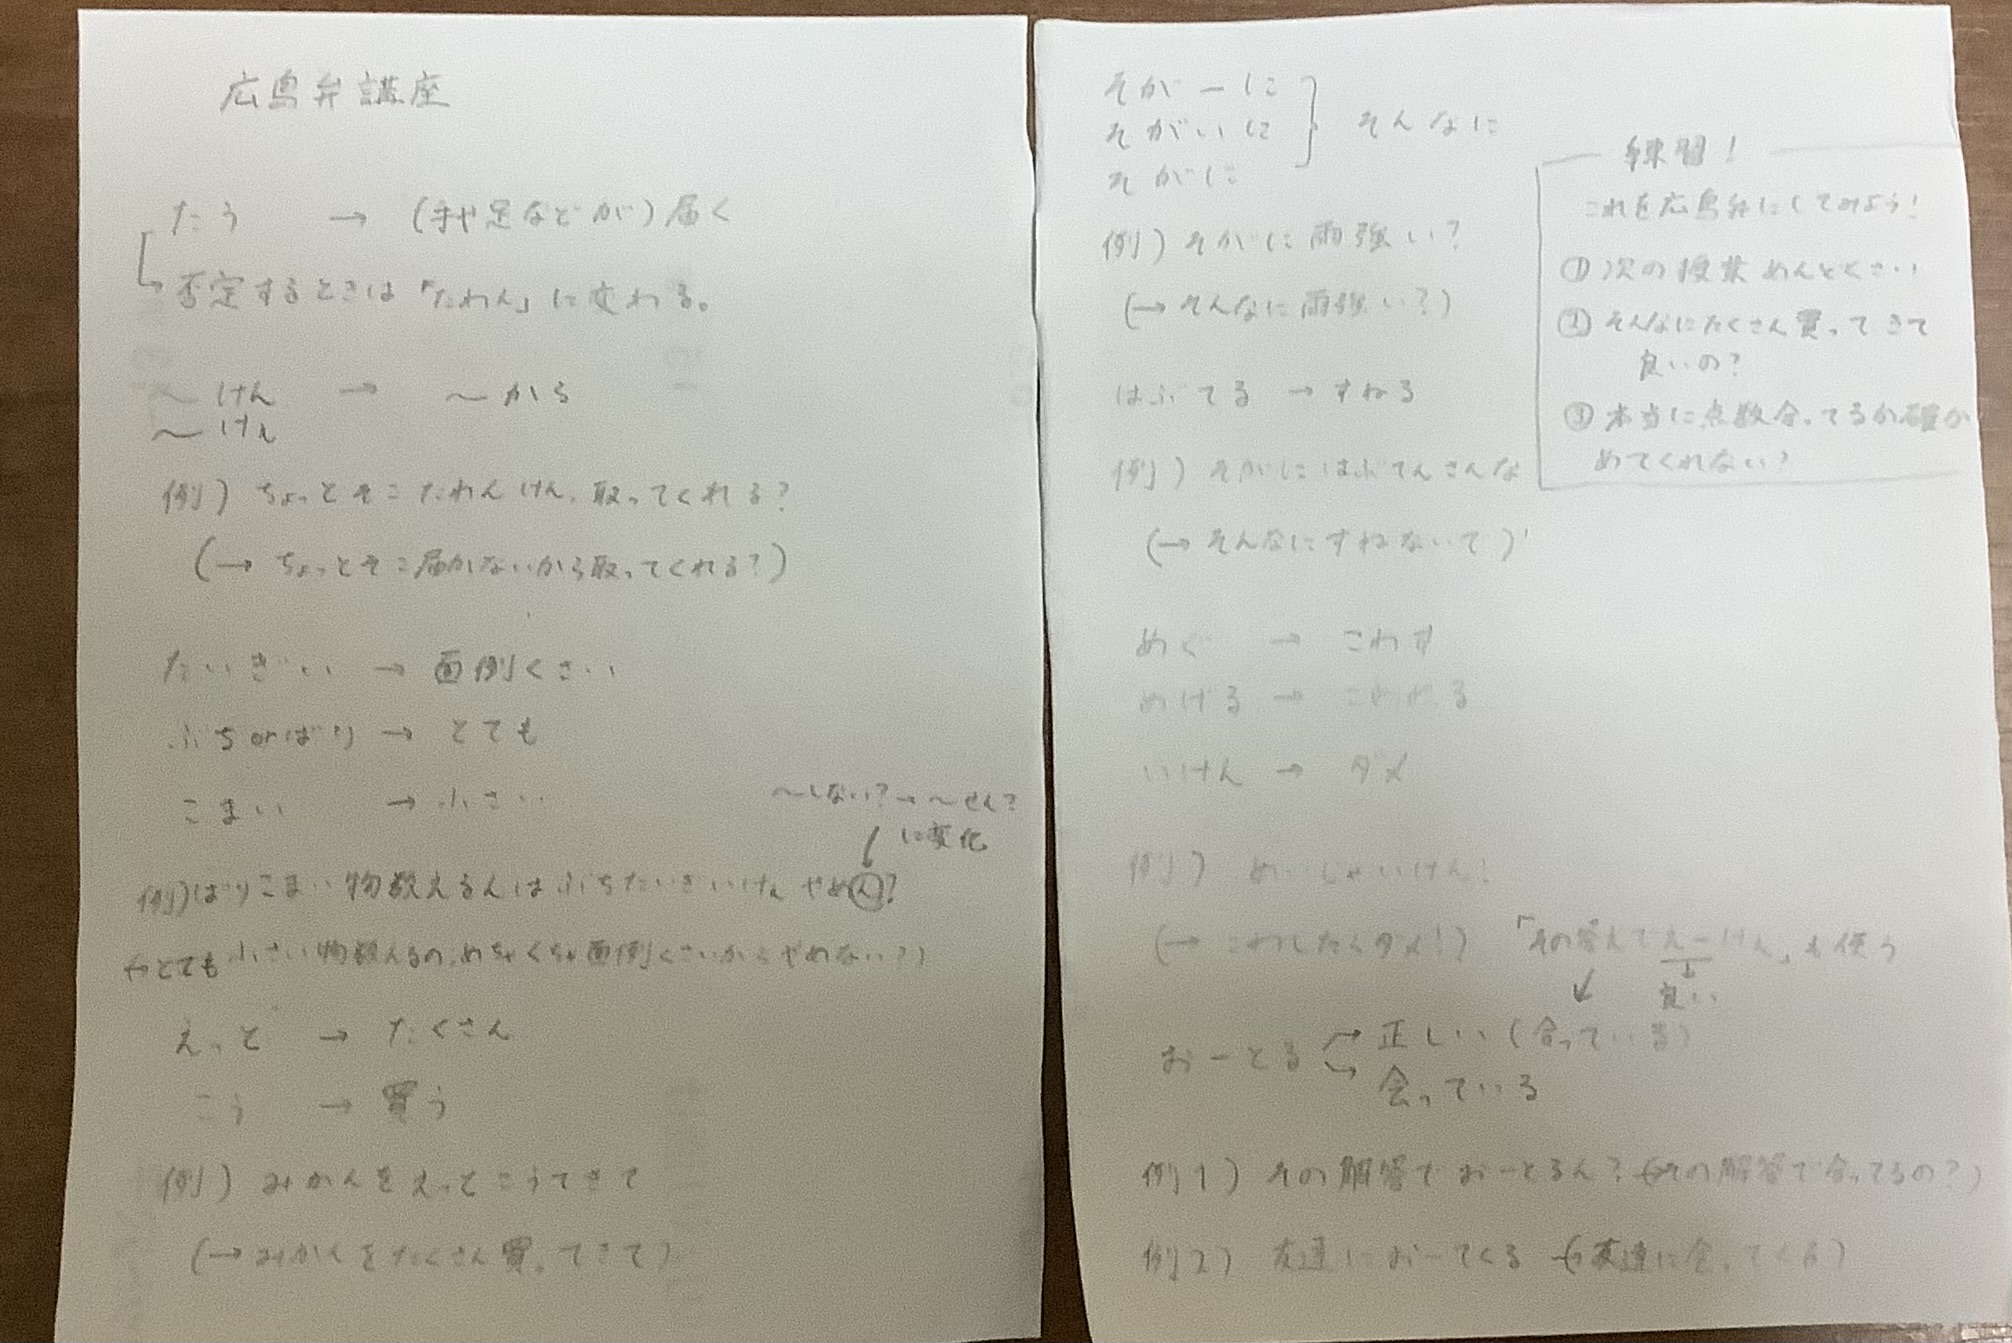 広島弁講座
たう → (手や足などが)届く
否定するときは「たわん」に変わる。
〜けん → 〜から
〜けぇ
例) ちょっとそこたわんけん、取ってくれる?
(→ ちょっとそこ届かないから取ってくれる?)
たいぎい → 面倒くさい
ぶち or ばり → とても
こまい → 小さい
〜しない?→〜せん?
に変化
例)ばりこまい物数えるんはぶちたいぎいけぇやめん?
(→とても小さい物数えるの、めちゃくちゃ面倒くさいからやめない?)
えっと → たくさん
こう → 買う
例) みかんをえっとこうてきて
(→みかんをたくさん買ってきて)
そがーに
そがいに
そがに
そんなに
例) そがに雨強い?
(→ そんなに雨強い?)
はぶてる → すねる
例) そがにはぶてんさんな
(→ そんなにすねないで)
めぐ → こわす
めげる → こわれる
いけん → ダメ
例) めいじゃいけん!
(→ こわしたらダメ!)
「その答えでえーけん」も使う
良い
おーとる
正しい (合っている)
会っている
例1) その解答でおーとるん? (→その解答で合ってるの?)
例2) 友達におーてくる (→友達に会ってくる)
練習!
これを広島弁にしてみよう!
① 次の授業めんどくさい
② そんなにたくさん買ってきて
良いの?
③ 本当に点数合ってるか確か
めてくれない?